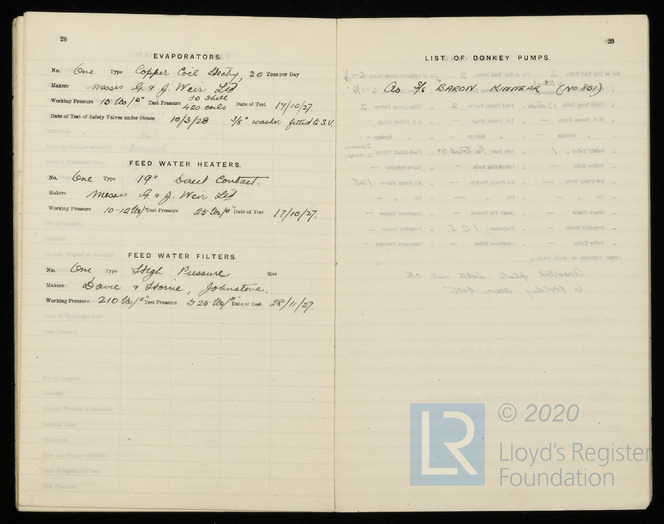 28
EVAPORATORS.
No. One Type Copper Coil Heaty, 20 Tons per Day
Makers Messrs G. & J. Weir Ltd
Working Pressure 15 lbs/□" Test Pressure 30 shell 420 coils Date of Test 14/10/27.
Date of Test of Safety Valves under Steam 10/3/28 3/8" washer fitted to S.V.
FEED WATER HEATERS.
No. One Type 19" Direct Contact.
Makers Messrs G & J. Weir Ltd
Working Pressure 10-12 lbs/ Test Pressure 25 lbs/□" Date of Test 17/10/27.
FEED WATER FILTERS.
No. One Type High Pressure Size
Makers Davie & Horne, Johnstone.
Working Pressure 210 lbs/□" Test Pressure 525 lbs/□" Date of Test 28/11/27.
29
LIST OF DONKEY PUMPS.
As S/S "BARON KINNEAR" (No 801)
LR
© 2020
Lloyd's Register
Foundation